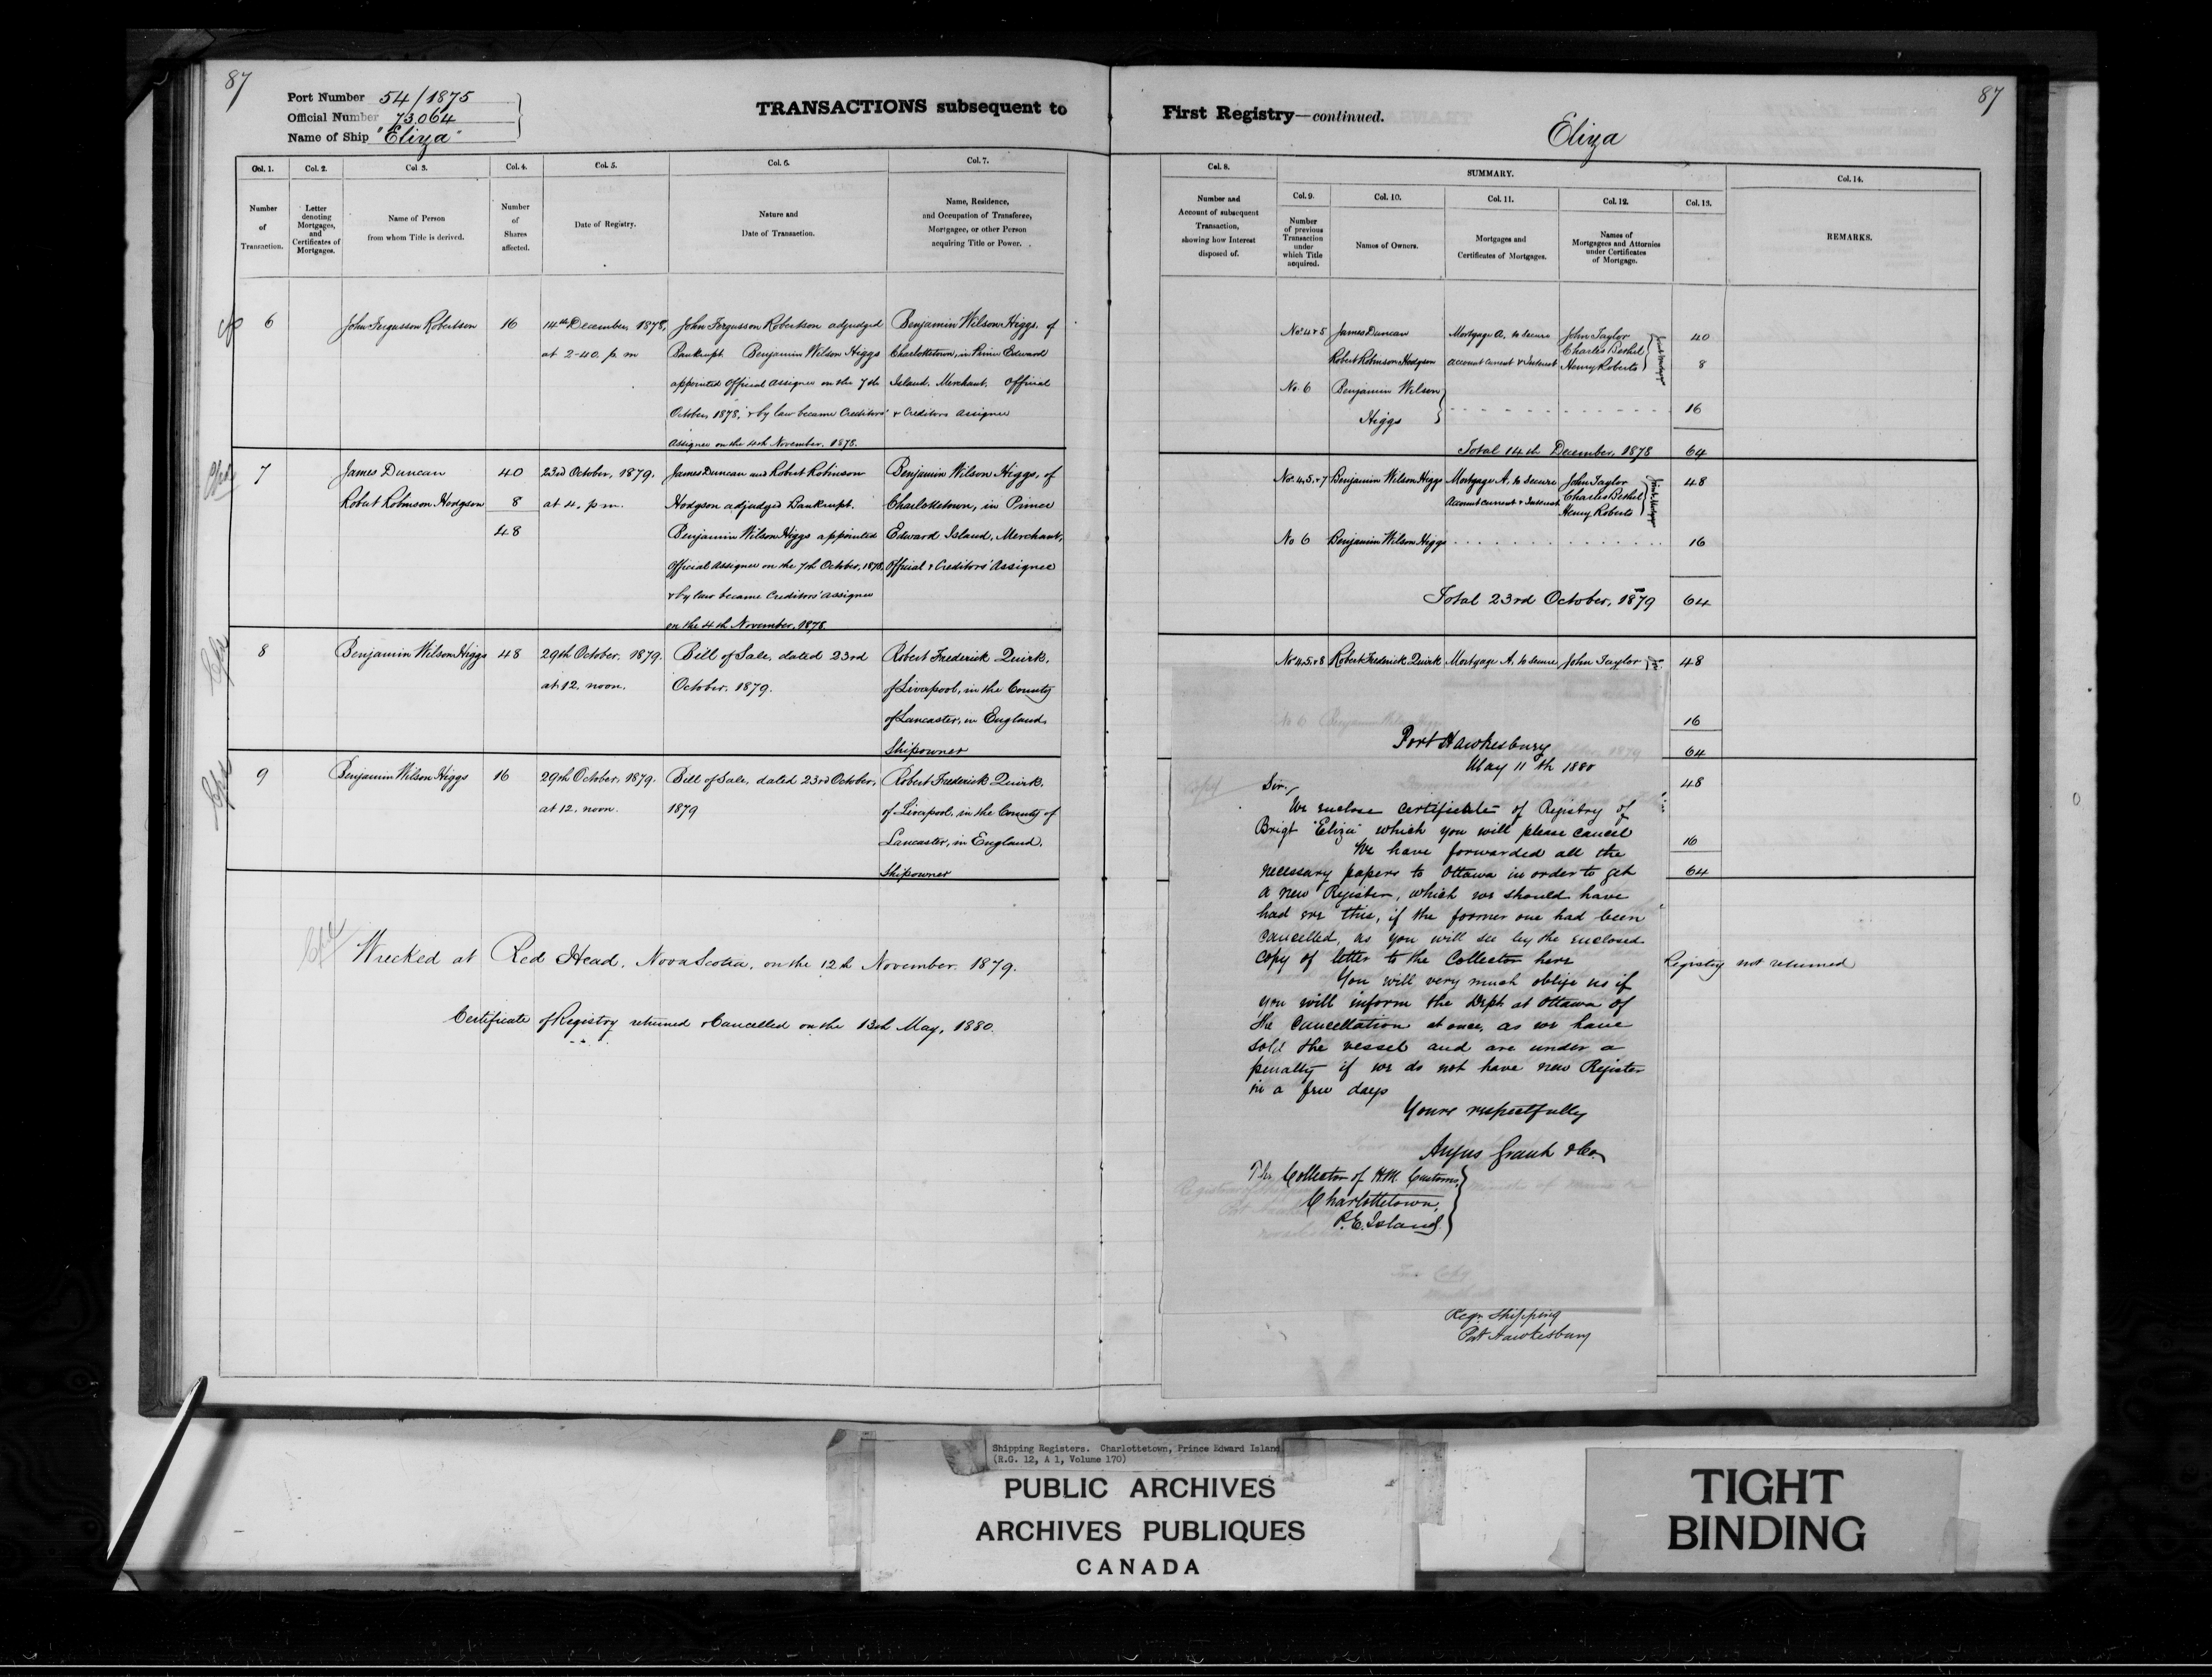 87
Port Number 54/1875
Official Number 73,064
Name of Ship "Eliza"
TRANSACTIONS subsequent to
Col. 1. Col. 2. Col 3. Col. 4. Col. 5. Col. 6. Col. 7.
Number of Transaction.
Letter denoting Mortgages, and Certificates of Mortgages.
Name of Person from whom Title is derived.
Number of Shares affected.
Date of Registry.
Nature and Date of Transaction.
Name, Residence, and Occupation of Transferee, Mortgagee, or other Person acquiring Title or Power.
6
John Fergusson Robertson
16
14th December, 1878,
at 2-40. p. m
John Fergusson Robertson adjudged
Bankrupt Benjamin Wilson Higgs
appointed Official Assignee on the 7th
October, 1878, & by law became Creditors'
Assignee on the 4th November. 1878.
Benjamin Wilson Higgs, of
Charlottetown, in Prince Edward
Island, Merchant, Official
& Creditors Assignee
7
James Duncan
Robert Robinson Hodgson
40
8
48
23rd October, 1879.
at 4. p m.
James Duncan and Robert Robinson
Hodgson adjudged Bankrupt.
Benjamin Wilson Higgs appointed
Official Assignee on the 7th October, 1878,
& by law became Creditors' Assignee
on the 4th November, 1878.
Benjamin Wilson Higgs, of
Charlottetown, in Prince
Edward Island, Merchant,
Official & Creditors' Assignee
8
Benjamin Wilson Higgs
48
29th October, 1879.
at 12. noon.
Bill of Sale, dated 23rd
October, 1879.
Robert Frederick Quirk,
of Liverpool, in the County
of Lancaster, in England,
Shipowner
9
Benjamin Wilson Higgs
16
29th October, 1879.
at 12. noon.
Bill of Sale, dated 23rd October,
1879
Robert Frederick Quirk,
of Liverpool, in the County of
Lancaster, in England,
Shipowner
Wrecked at Red Head, Nova Scotia, on the 12th November. 1879.
Certificate of Registry returned & Cancelled on the 13th May, 1880.
87
First Registry—continued.
Eliza
Col. 8.
SUMMARY.
Col. 14.
Col. 9. Col. 10. Col. 11. Col. 12. Col. 13.
Number and Account of subsequent Transaction, showing how Interest disposed of.
Number of previous Transaction under which Title acquired.
Names of Owners.
Mortgages and Certificates of Mortgages.
Names of Mortgagees and Attornies under Certificates of Mortgage.
REMARKS.
Nos. 4 & 5 James Duncan Mortgage A. to secure John Taylor 40
Charles Bethel
Robert Robinson Hodgson Account Current & Interest Henry Roberts 8
Joint Mortgagees
No. 6 Benjamin Wilson
Higgs
16
Total 14th December, 1878 64
Nos. 4, 5, & 7 Benjamin Wilson Higgs Mortgage A. to secure John Taylor 48
Account Current & Interest Charles Bethel
Henry Roberts
Joint Mortgagees
No 6 Benjamin Wilson Higgs 16
Total 23rd October, 1879 64
Nos 4, 5, & 8 Robert Frederick Quirk Mortgage A. to secure John Taylor 48
16
64
48
16
64
Port Hawkesbury
May 11th 1880
Sir,
We enclose Certificate of Registry of
Brigt "Eliza" which you will please cancel
We have forwarded all the
necessary papers to Ottawa in order to get
a new Register, which we should have
had ere this, if the former one had been
cancelled, as you will see by the enclosed
copy of letter to the Collector here
You will very much oblige us if
you will inform the Dept at Ottawa of
the Cancellation at once, as we have
sold the vessel and are under a
penalty if we do not have new Register
in a few days
Yours respectfully
Angus Grant & Co.
The Collector of H.M. Customs,
Charlottetown,
P. E. Island.
Registry not returned
Regr. Shipping
Port Hawkesbury
Shipping Registers. Charlottetown, Prince Edward Island
(R.G. 12, A 1, Volume 170)
PUBLIC ARCHIVES
ARCHIVES PUBLIQUES
CANADA
TIGHT
BINDING